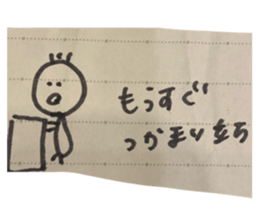 もうすぐ
つかまり立ち